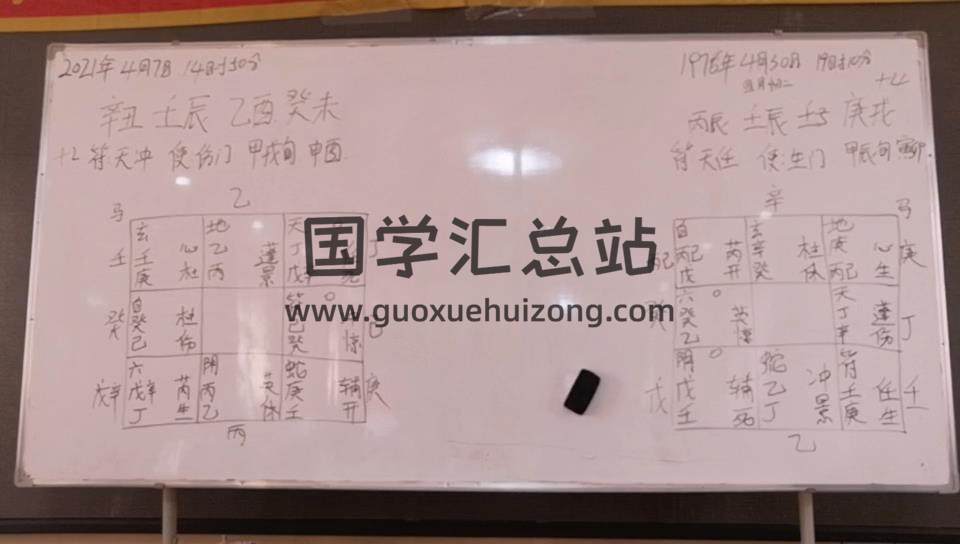 2021年 4月7日 14时10分
辛丑 壬辰 乙酉 癸未
+2 符天冲 使伤门 甲戌旬 申酉
乙
马
玄 地 天
壬 壬 心 乙 蓬 丁 丁
庚 杜 丙 景 戊
符
癸 白 杜
癸 伤 己
己 癸 惊
六 阴 蛇
戊辛 戊辛 芮 丙 英 庚 辅 庚
丁 生 乙 休 壬 开
丙
1976年 4月30日 19时10分
+4
丙辰 壬辰 庚戌
符天任 使生门 甲辰旬 寅卯
辛
马
白 玄 地
丙己 芮 辛 柱 庚 心 庚
戊 开 癸 休 丙己 生
六 天
癸 英 丁 蓬 丁
乙 惊 辛 伤
阴 蛇 符
戊 戊 辅 乙 冲 壬 任 壬
壬 死 丁 景 庚 生
乙
国学汇总站
www.guoxuehuizong.com